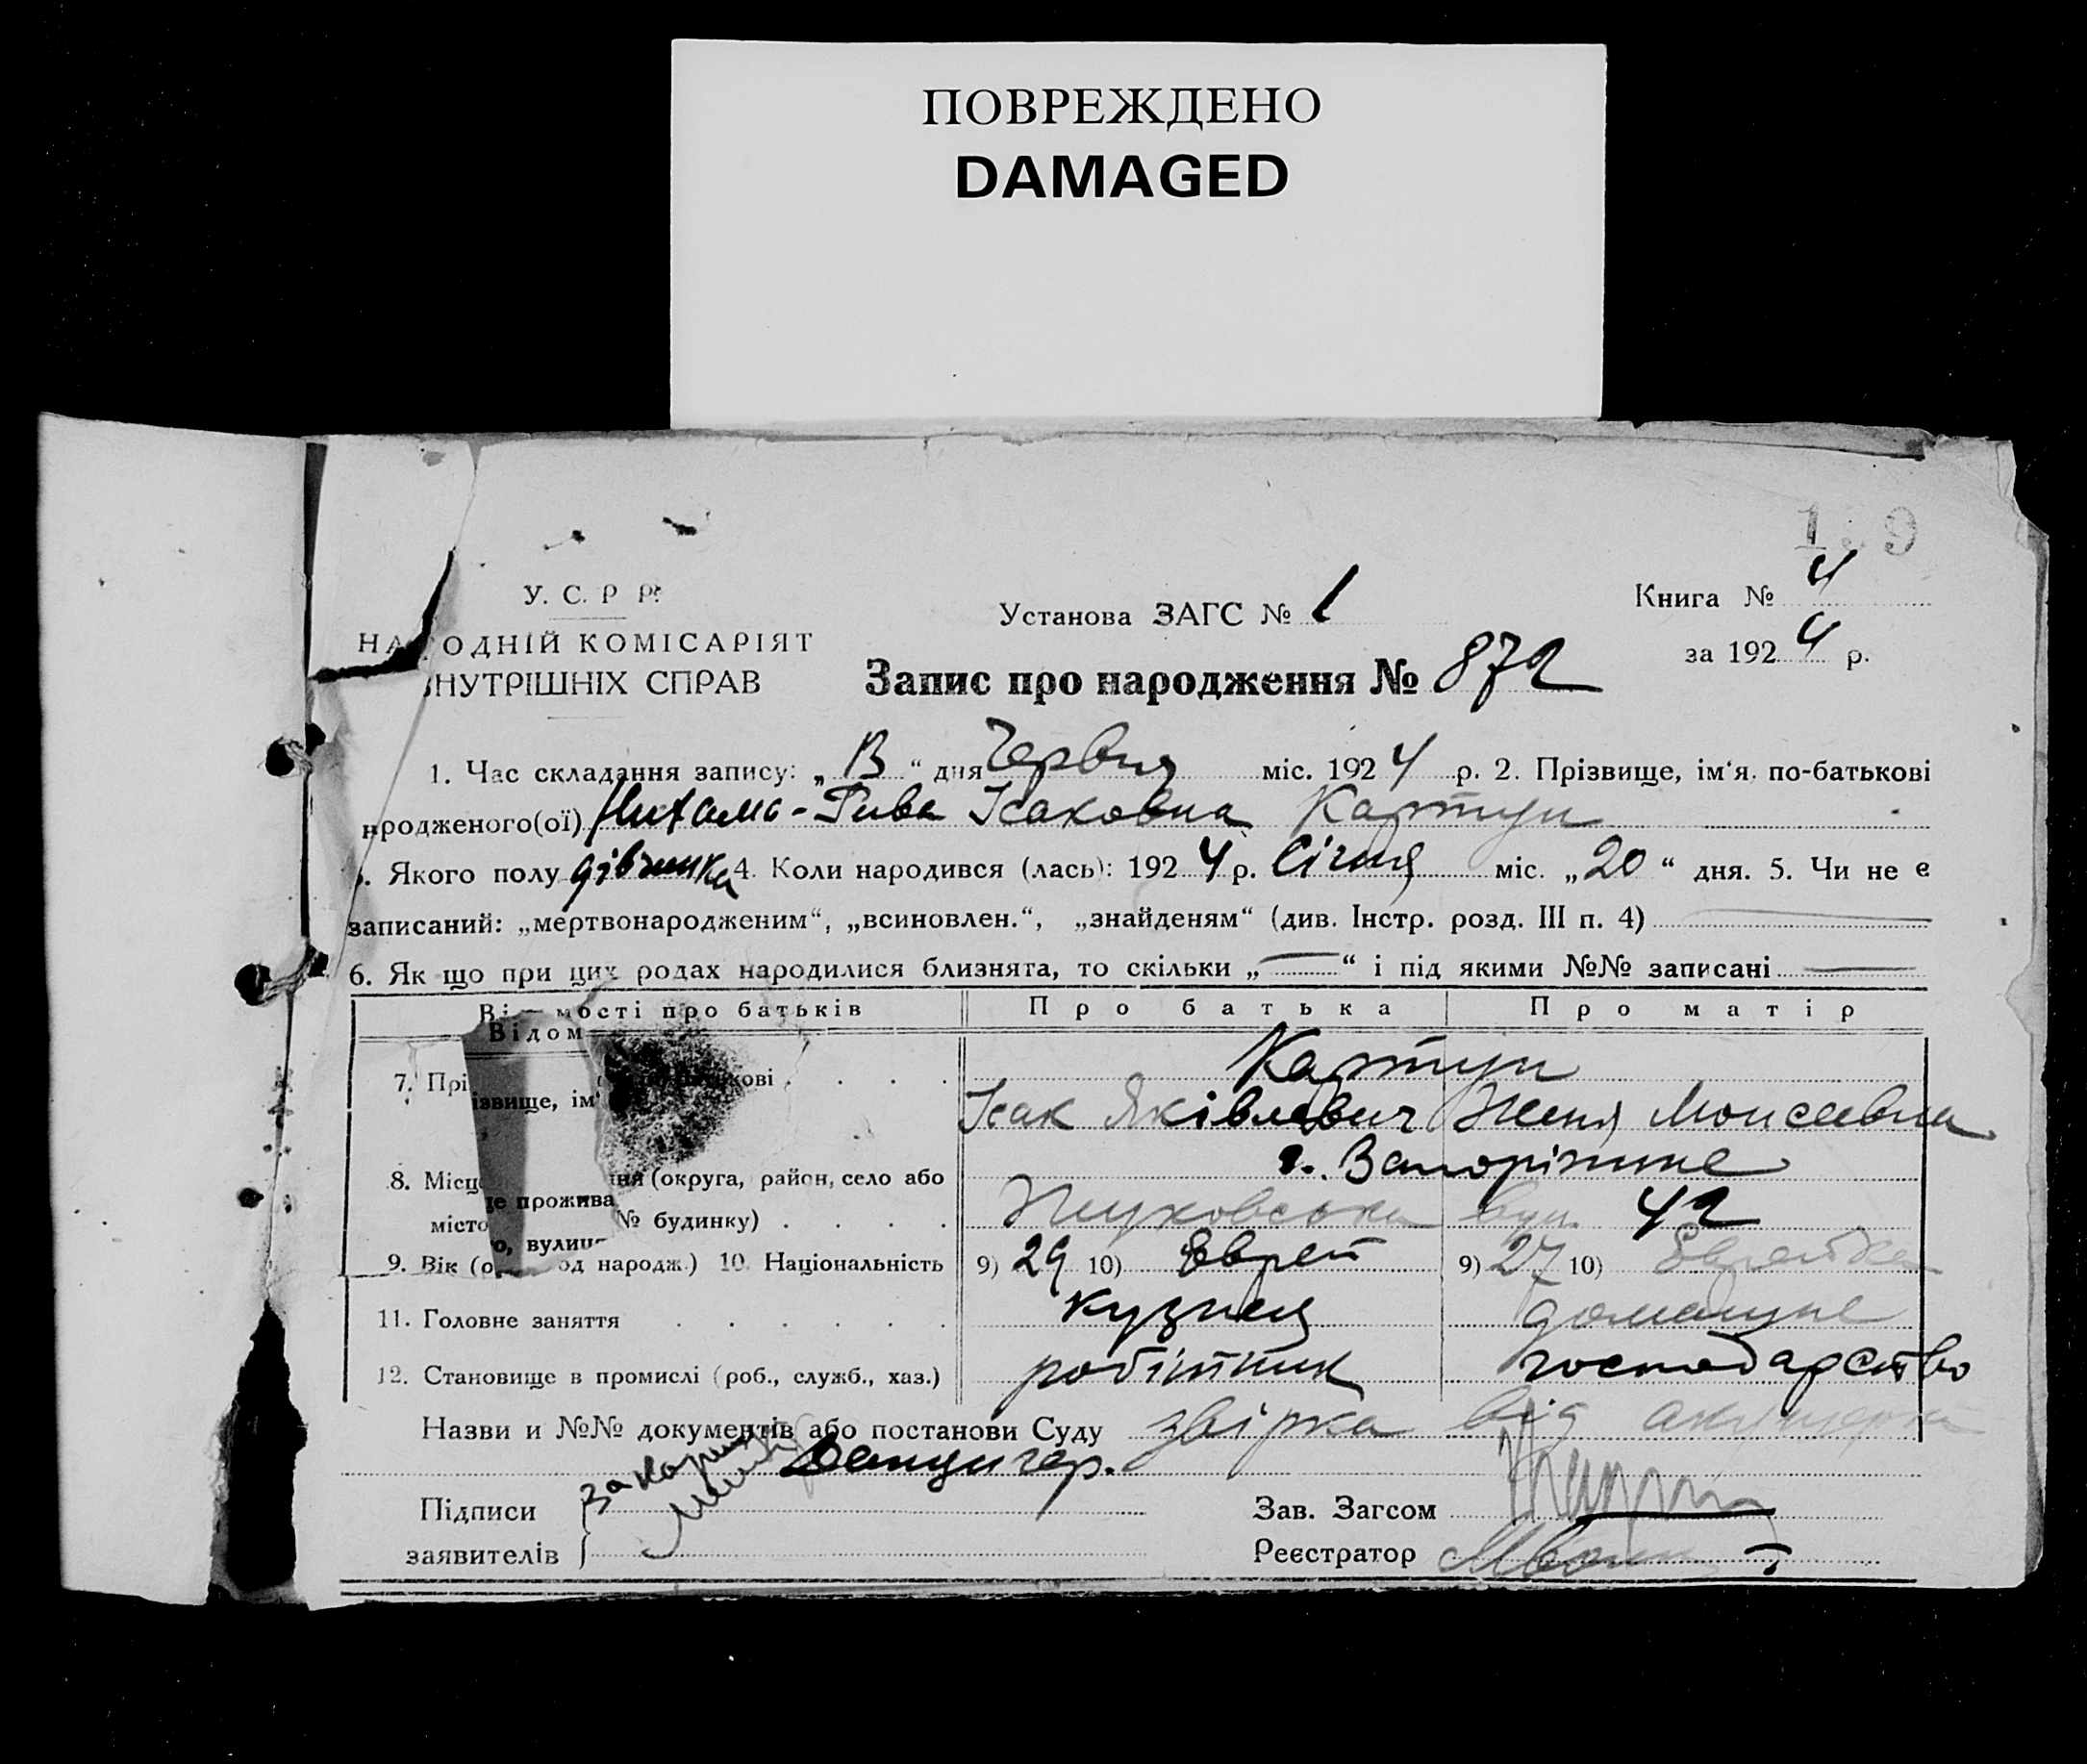 ПОВРЕЖДЕНО
DAMAGED
У. С. Р Р.
НА ОДНІЙ КОМІСАРІЯТ
ВНУТРІШНІХ СПРАВ
Установа ЗАГС № 1
Запис про народження № 872
Книга № 4
за 1924 р.
1. Час складання запису: „13“ дня Червня міс. 1924 р. 2. Прізвище, ім'я, по-батькові
нродженого(ої) Рива Ісаковна Картун
. Якого полу дівчинка 4. Коли народився (лась): 1924 р. Січня міс. „20“ дня. 5. Чи не є
записаний: „мертвонародженим“, „всиновлен.“, „знайденям“ (див. Інстр. розд. III п. 4)
6. Як що при цих родах народилися близнята, то скільки „—“ і під якими №№ записані —
Ві мості про батьків Про батька Про матір
Відом
7. Прі кові . . . .
ізвище, ім'
Картун
Ісак Яківлевич Женя Моисеевна
8. Місц ня (округа, район, село або
це прожива
місто № будинку) . . . .
о, вулиц
г. Запоріжжє
Жуковська вул. 42
9. Вік (о од народж.) 10. Національність 9) 29 10) Еврей 9) 27 10) Еврейка
11. Головне заняття . . . . . . коузнец домашнє
12. Становище в промислі (роб., служб., хаз.) робітник господарство
Назви и №№ документів або постанови Суду звірка від акушерки
Данцигер.
Підписи
заявителів
Зав. Загсом
Реєстратор